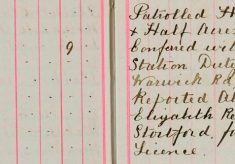 Patrolled H
& Half Acre
9 Confared wit
Station Duty
Warwick Rd
Reported Al
Elizabeth Ro
Stortford, fo
Licence